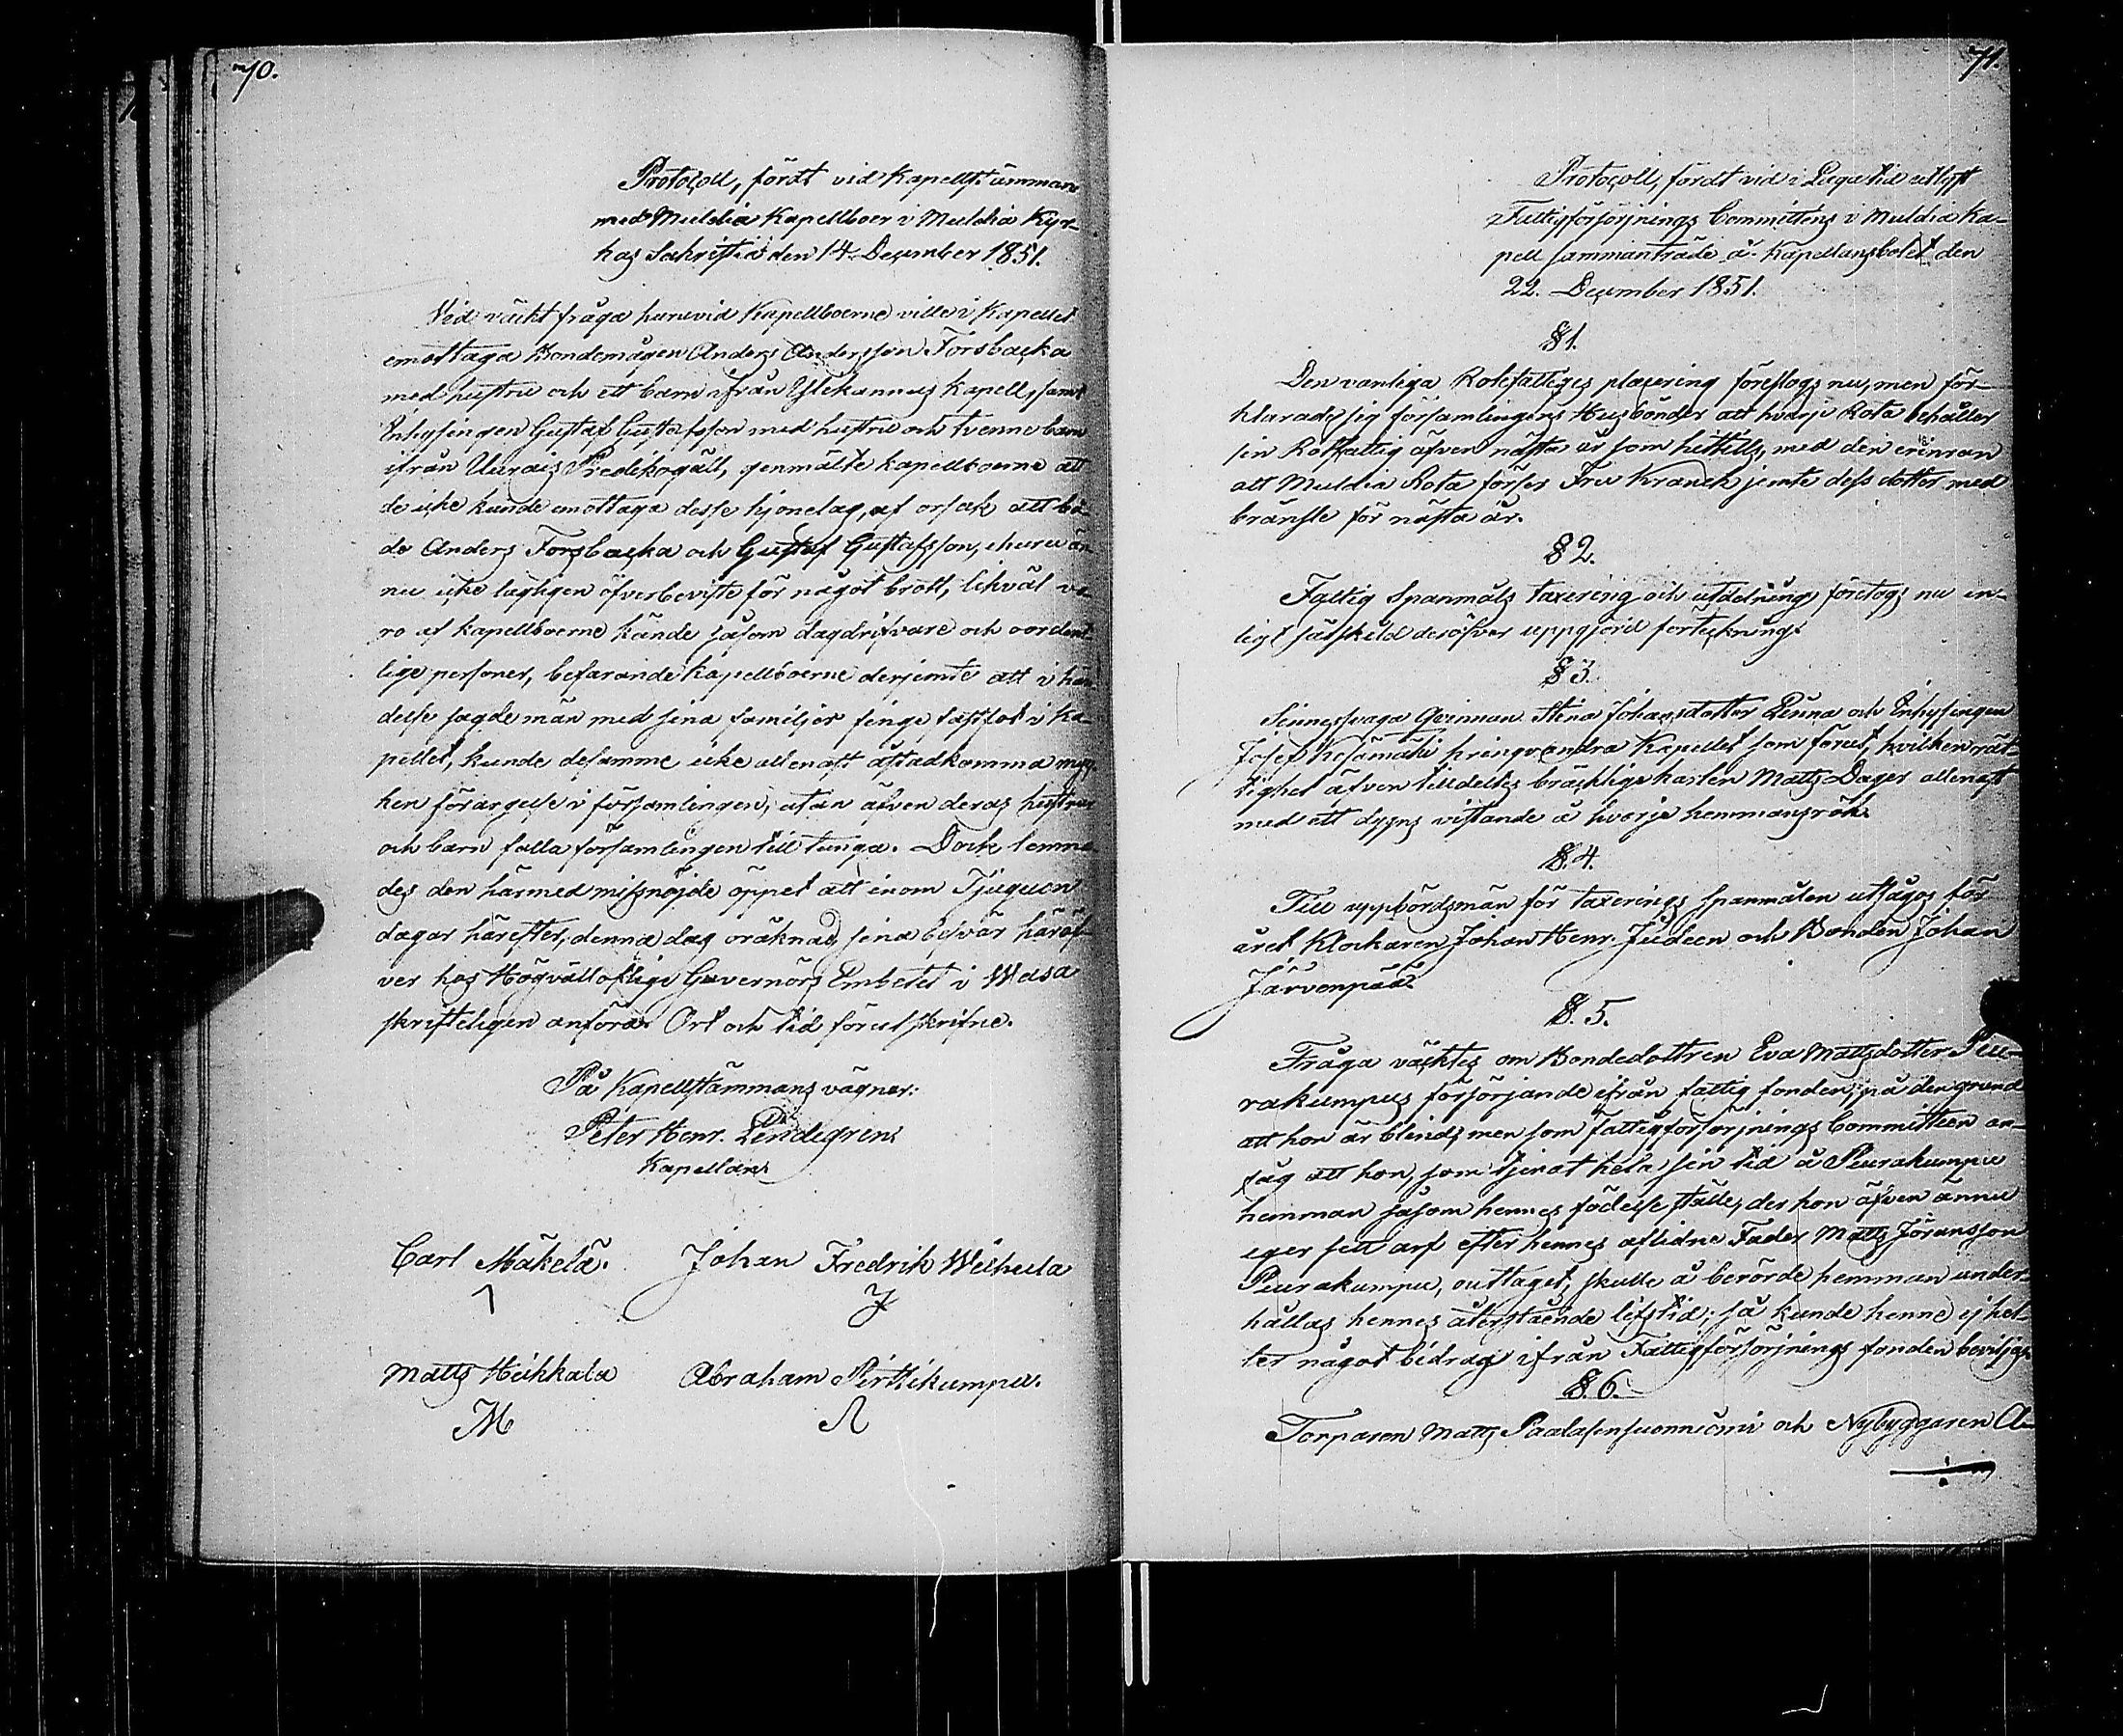 70.
Protocoll, fördt vid Kapellstämman
med Muldia Kapellboer i Muldia Kyr-
kas Sakristia den 14. December 1851.
Vid väckt fråga huruvid Kapellboerne ville i Kapellet
emottaga Bondemågen Anders Andersson Forsbacka
med hustru och ett barn ifrån Ylikannus Kapell, samt
Inhysingen Gustaf Gustafsson med hustru och tvenne barn
ifrån Uurais Predikogäll, genmälte kapellboerne att
de icke kunde emottaga desse hjonelag, af orsak att bå-
de Anders Forsbacka och Gustaf Gustafsson, ehuru än
nu icke lagligen öfverbeviste för något brott, likväl vo
ro af kapellboerne kände såsom dagdrifvare och oordent
lige personer, befarande Kapellboerne derjemte att i hän
delse sagde män med sina familjer finge fastfot i Ka-
pellet, kunde desamme icke allenast åstadkomma myc
ken förargelse i församlingen, utan äfven deras hustrur
och barn falla församlingen till tunga. Dock lemna
des den härmed missnöjde öppet att inom Tjuguon
dagar härefter, denna dag oräknad, sina besvär häröf-
ver hos Högvällofliga Guvernörs Embetet i Wasa
skrifteligen anföra. Ort och tid förut skrifne.
På Kapellstämmans vägnar:
Peter Henr. Lindegren
Kapellan
Carl Mäkelä. Johan Fredrik Weihula
Matts Heikkala Abraham Pirttikumpu.
M
71.
Protocoll, fördt vid i Laga tid utlyst
Fattigförsörjnings Committéns i Muldia Ka-
pell sammanträde å Kapellansbolet den
22. December 1851.
§ 1.
Den vanliga Rotefattiges placering föreslogs nu, men för-
klarade sig församlingens Husbönder att hvarje Rota behåller
sin Rotfattig äfven nästa år som hittills, med den erinran
att Muldia Rota förser Fru Kranck jemte dess dotter med
bränsle för nästa år.
§ 2.
Fattig Spanmåls taxering och utdelning företogs nu en-
ligt särskild deröfver uppgjord förteckning.
§ 3.
Sinnessvaga Qvinnan Stina Johansdotter Linna och Inhysingen
Josef Kesämäki kringvandra Kapellet som förut, hvilken rät-
tighet äfven tilldeltes bräcklige karlen Matts Dager allenast
med ett dygns vistande å hvarje hemmansrök.
§. 4.
Till uppbördsmän för taxerings spanmålen utsågos för
året Klockaren Johan Henr. Judeen och Bonden Johan
Järvenpää.
§. 5.
Fråga väcktes om Bondedottren Eva Mattsdotter Peu-
rakumpus försörjande ifrån fattig fonden, på den grund
att hon är blind, men som Fattigförsörjnings Committeen an-
såg att hon, som tjenat hela sin tid å Peurakumpu
hemman såsom hennes födelse ställe, der hon äfven ännu
eger sitt arf efter hennes aflidne Fader Matts Göransson
Peurakumpu, outtaget, skulle å berörde hemman under-
hållas hennes återstående lifstid; så kunde henne ej hel-
ler något bidrag ifrån Fattigförsörjnings fonden beviljas.
§. 6.
Torparen Matts Paalasensuonniemi och Nybyggaren A-